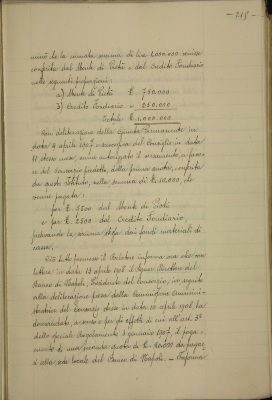 - 215 -
mino de la somma di lire 1,000.000 venisse
conferita dal Monte di Pietà e dal Credito Fondiario
nelle seguenti proporzioni:
a) Monte di Pietà £. 750.000
b) Credito Fondiario " 250.000
Totale £ 1,000.000
Con deliberazione della Giunta Permanente in
data 4 aprile 190 e del Consiglio in data
11 stesso mese, venne autorizzato il versamento in favore
del Consorzio predetto, della prima quota, conferita
da questo Istituto, nella somma di £. 10,000, che
venne pagata:
per £. 7500 dal Monte di Pietà
e per £. 2500 dal Credito Fondiario,
prelevando la somma stessa dai fondi materiali di
cassa.
Ciò premesso il Relatore informa ora che con
lettera in data 13 aprile 1908 il Signor Direttore del
Banco di Napoli, Presidente del Consorzio, in seguito
alla deliberazione presa dalla Commissione Ammini-
strativa del Consorzio stesso in data 10 aprile 1908, ha
domandato, a senso e per gli effetti di cui all'art. 3°
dello speciale Regolamento 3 gennaio 1907, il paga-
mento di una seconda quota di £. da pagar-
si alla sede locale del Banco di Napoli. - Informa